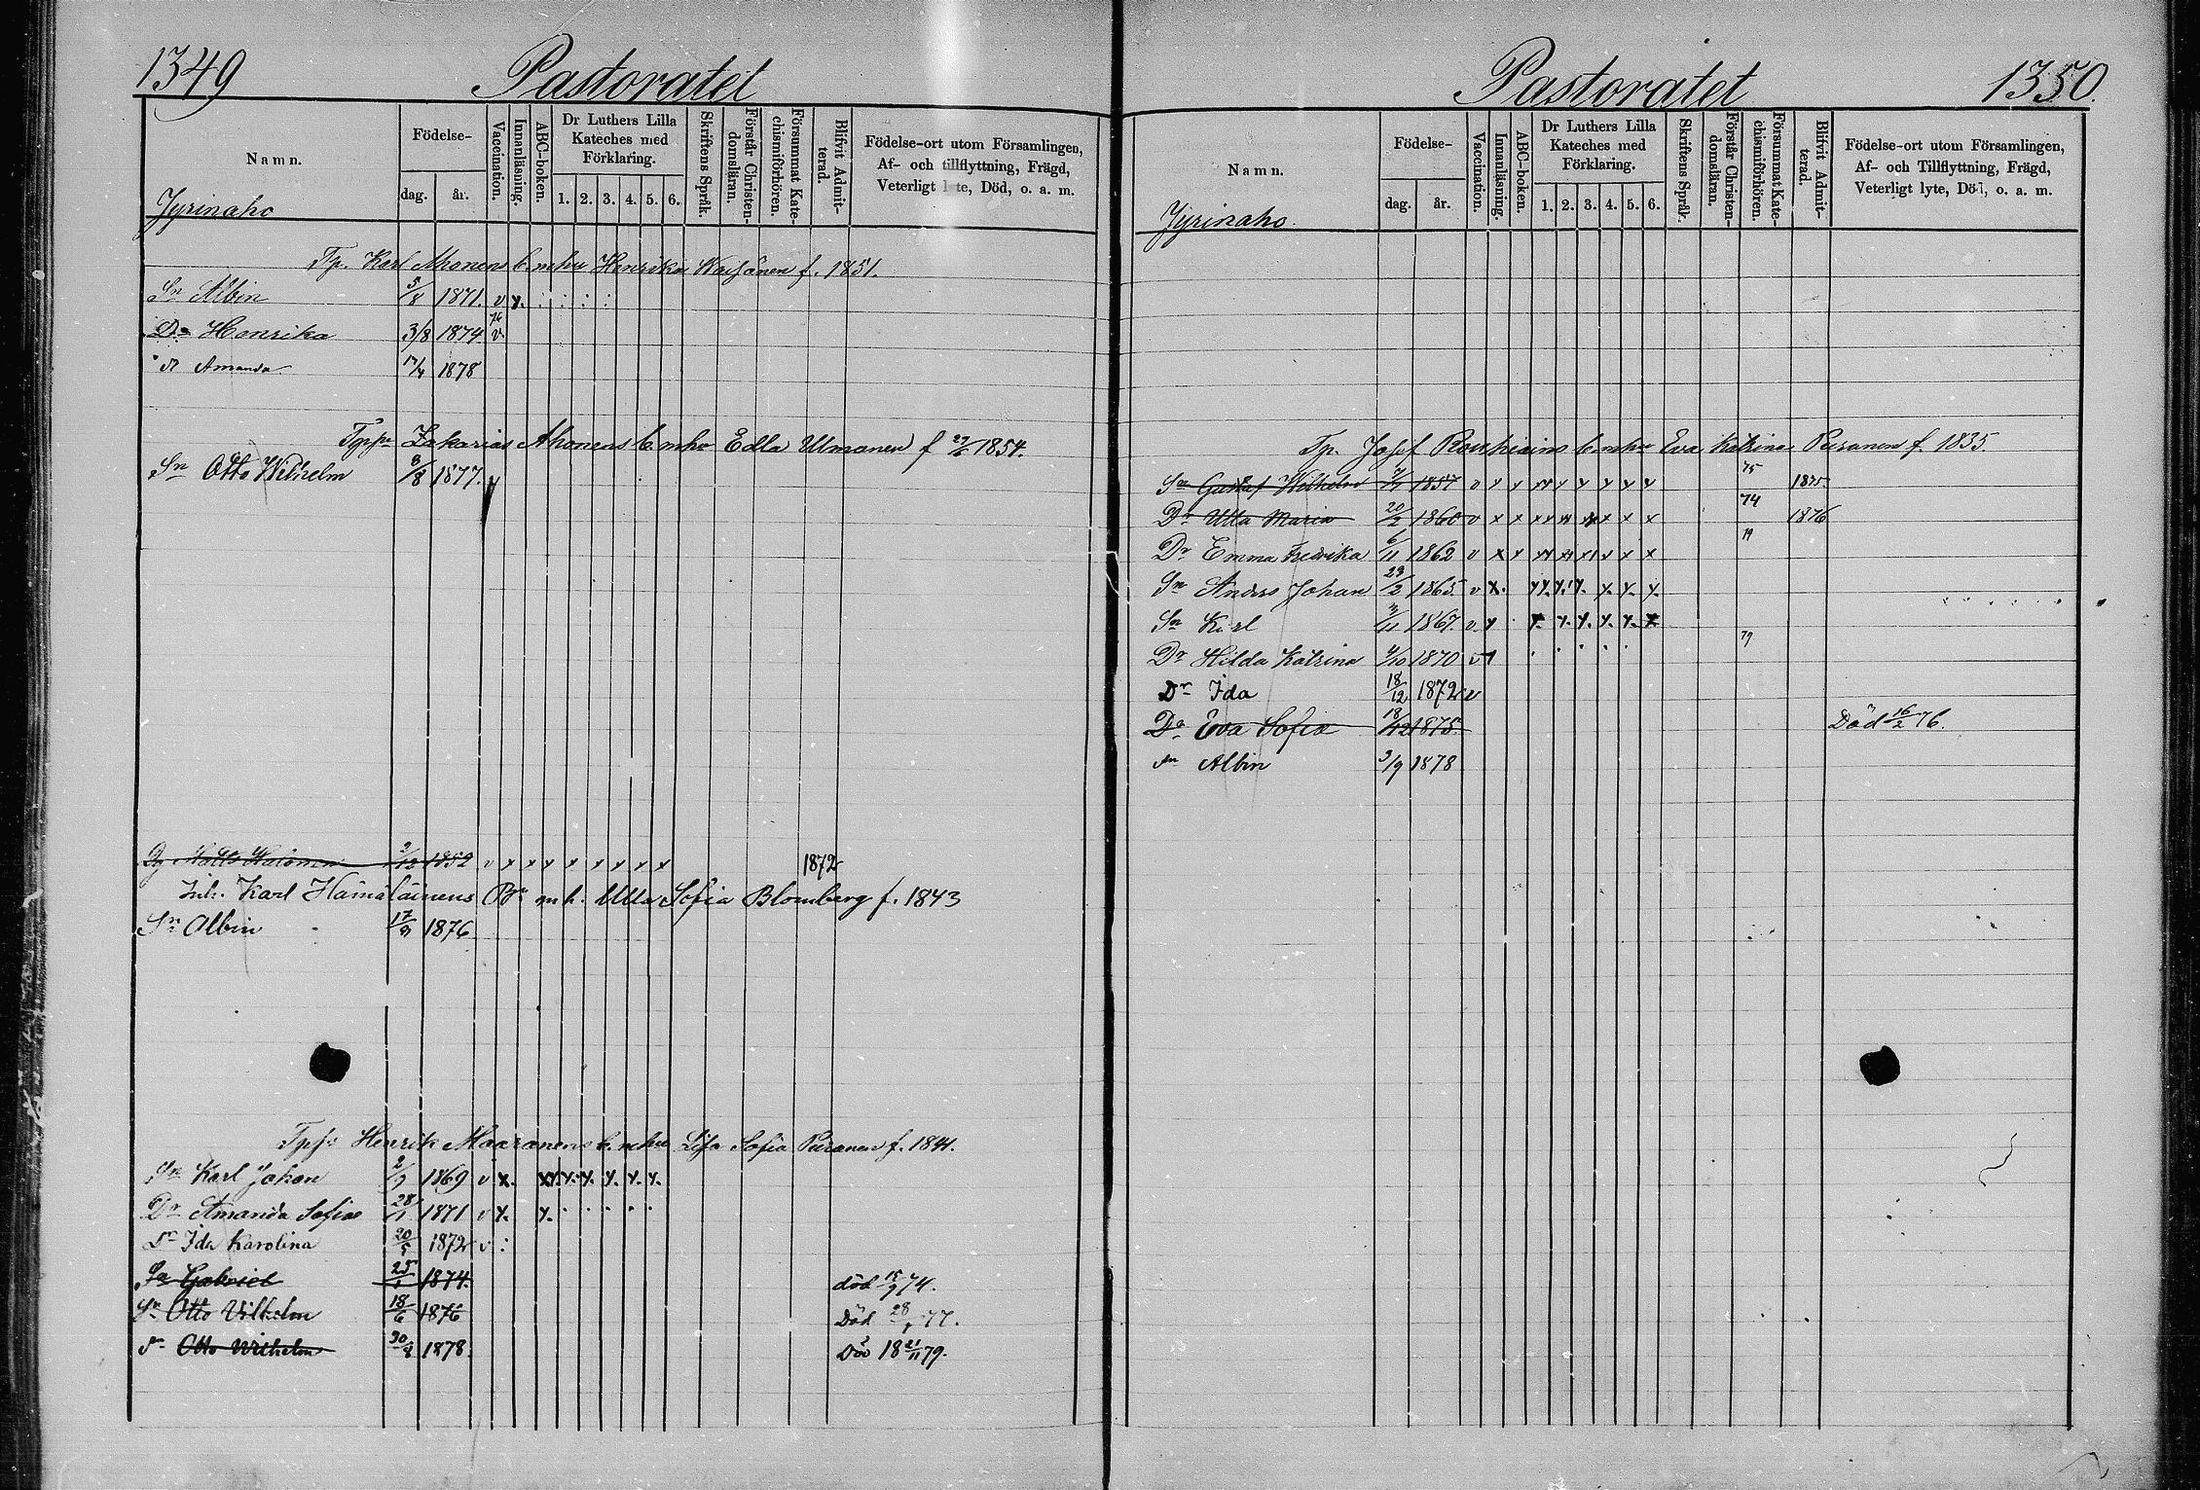 1349 Pastoratet
Namn. Födelse- dag. år. Vaccination. Innanläsning. ABC-boken. Dr Luthers Lilla Kateches med Förklaring. 1. 2. 3. 4. 5. 6. Skriftens Språk. Förstår Christendomsläran. Försummat Katechismiförhören. Blifvit Admitterad. Födelse-ort utom Församlingen, Af- och tillflyttning, Frägd, Veterligt lyte, Död, o. a. m.
Jyrinaho
Tp. Karl Ahonens b. m hu Henrika f. 1851.
Sn Albin 5/8 1871. v x.
Dr Henrika 3/8 1874 v.
Dr Amanda 17/4 1878
Zakarias Ahonens b. m hu Edla Utmanen f 1854.
Sn Otto Wilhelm 8/8 1877.
1852 v x x x x x x x x 1872
Inh. Karl Hämäläinens m h. Ulla Sofia Blomberg f. 1843
Sn Albin 17/9 1876
Henrik Maaranens b. m hu Lisa Sofia Puranen f. 1841.
Sn Karl Johan 2/9 1869 v x.
Dr Amanda Sofia 28/1 1871 v x. x.
Dr Ida Karolina 20/5 1872 v
Sn Gabriel 1874. död 15/9 74.
Sn Otto Vilhelm 18/6 1876 Död 28/1 77.
Sn Otto Wilhelm 30/8 1878. Död 18 21/11 79.
Pastoratet 1350.
Namn. Födelse- dag. år. Vaccination. Innanläsning. ABC-boken. Dr Luthers Lilla Kateches med Förklaring. 1. 2. 3. 4. 5. 6. Skriftens Språk. Förstår Christendomsläran. Försummat Katechismiförhören. Blifvit Admitterad. Födelse-ort utom Församlingen, Af- och Tillflyttning, Frägd, Veterligt lyte, Död, o. a. m.
Jyrinaho.
Tp. Josef b. m hu Eva Katrina Puranen f. 1835.
Sn Gustaf Wilhelm 1857 v x x xx x x x x x 75 1875.
Dr Ulla Maria 20/2 1860 v x x xx xx xx x x x 74 1876
Dr Emma Fredrika 6/11 1862 v x x xx xx xx x x x
Sn Anders Johan 23/2 1865. v x.
Sn Karl 1867. v x
Dr Hilda Katrina 4/10 1870 v 79
Dr Ida 18/12 1872 v
Dr Eva Sofia 18/12 1875. Död 16/2 76.
Sn Albin 3/9 1878